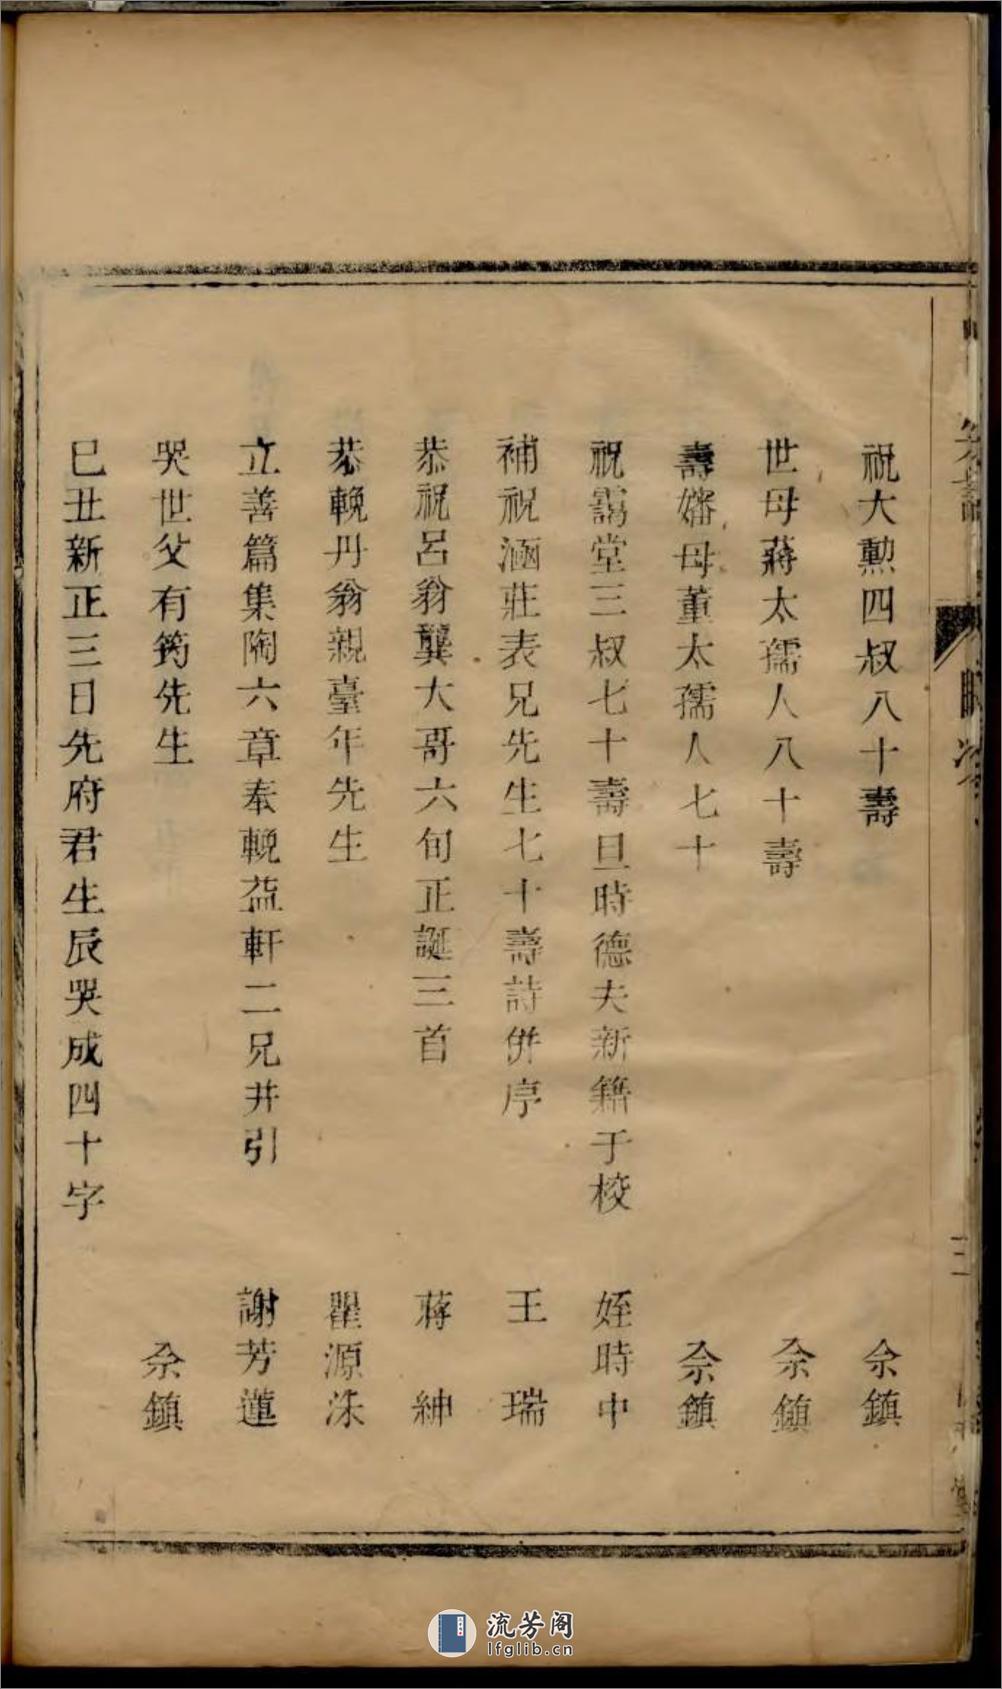 祝大勲四叔八十壽 尒鎮
世母蔣太孺人八十壽 尒鎮
壽嬸母董太孺人七十 尒鎮
祝靄堂三叔七十壽旦時德夫新籍于校 姪時中
補祝涵莊表兄先生七十壽詩併序 王瑞
恭祝呂翁龔大哥六旬正誕三首 蔣紳
恭輓丹翁親臺年先生 瞿源洙
立善篇集陶六章奉輓益軒二兄并引 謝芳蓮
哭世父有筠先生 尒鎮
巳丑新正三日先府君生辰哭成四十字
三
流芳阁
lfglib.cn